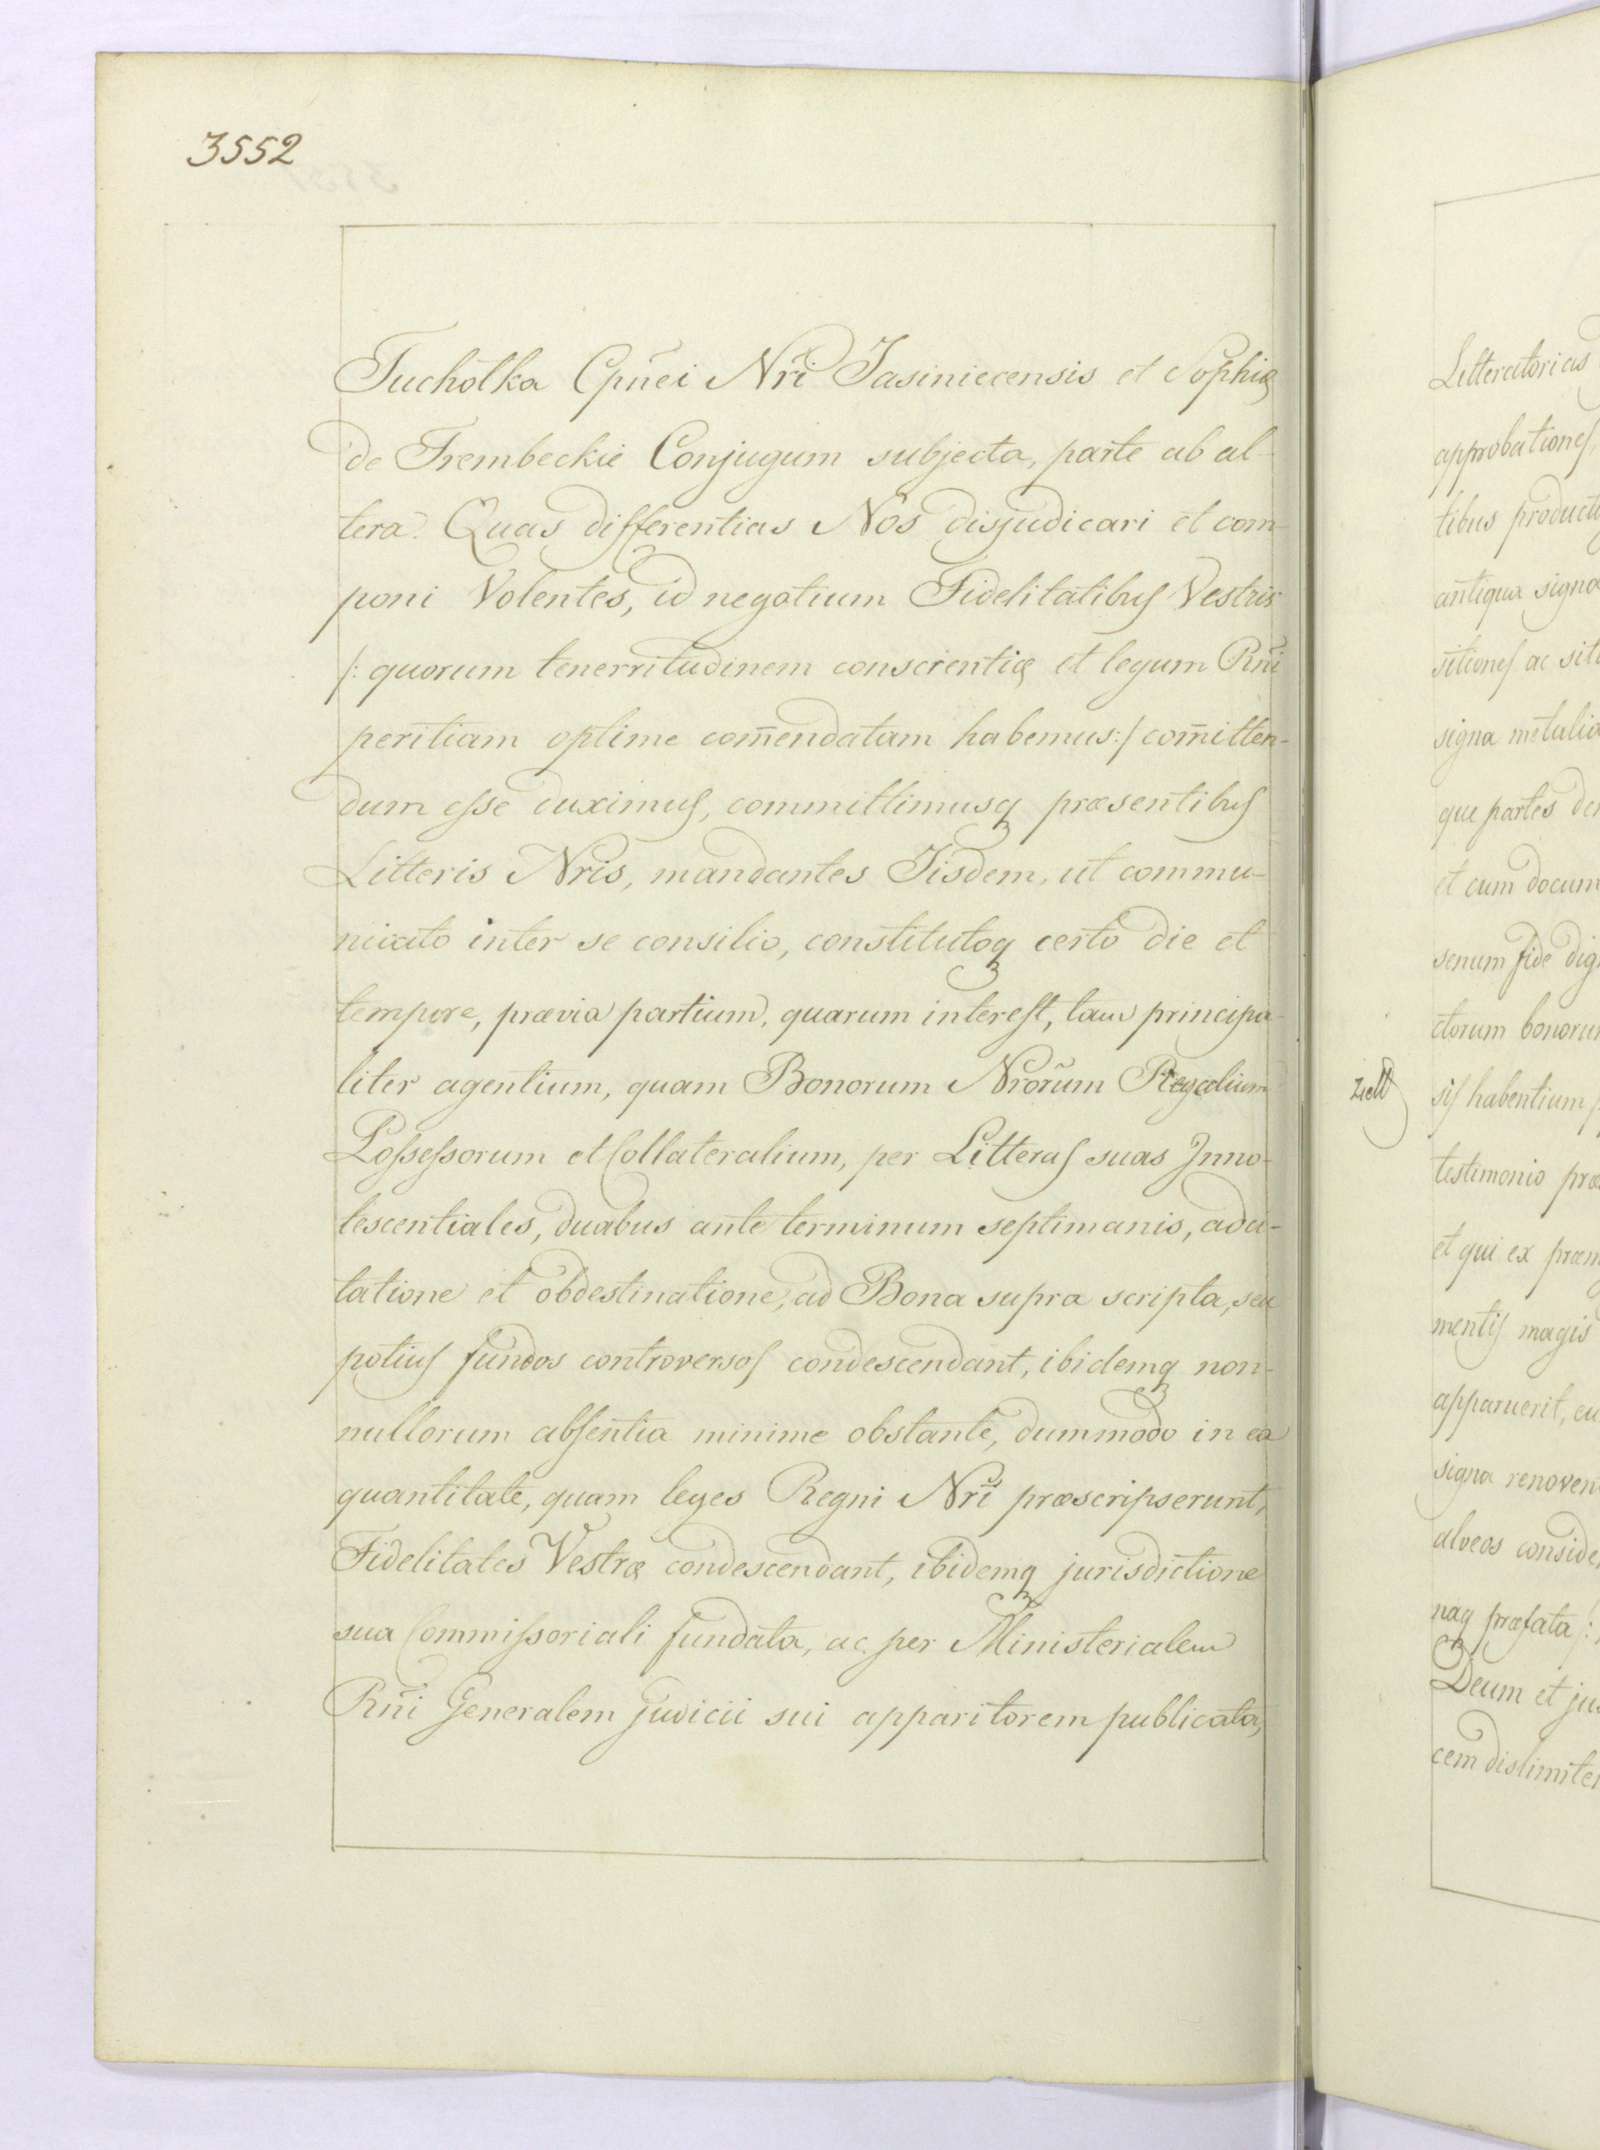 3552
Tucholka Cpnei Nri Jasiniecensis et Sophiæ
de Trembeckie Conjugum subjecta, parte ab al-
tera. Quas differentias Nos disjudicari et com-
poni Volentes, id negotium Fidelitatibus Vestris
/: quorum tenerritudinem conscientiæ et legum Rni
peritiam optime com̄endatam habemus :/ com̄itten-
dum esse duximus, committimusq præsentibus
Litteris Nris, mandantes Iisdem, ut commu-
nicato inter se consilio, constitutoq certo die et
tempore, prævia partium, quarum interest, tam principa-
liter agentium, quam Bonorum Nrorum Regalium
Possessorum et Collateralium, per Litteras suas Inno-
tescentiales, duabus ante terminum septimanis, adci-
tatione et obdestinatione, ad Bona supra scripta, seu
potius fundos controversos condescendant, ibidemq non-
nullorum absentia minime obstante, dummodo in ea
quantitate, quam leges Regni Nri præscripserunt,
Fidelitates Vestræ condescendant, ibidemq jurisdictione
sua Commissoriali fundata, ac per Ministerialem
Rni Generalem judicii sui apparitorem publicata,
Litteratorias
approbationes,
tibus
antiqua
sitiones ac
signa
que partes
et cum
senum fide
ctorum
sis habentium
testimonio
et qui ex
mentis magis
apparuerit,
signa
alveos
naq præfata /:
Deum et
cem